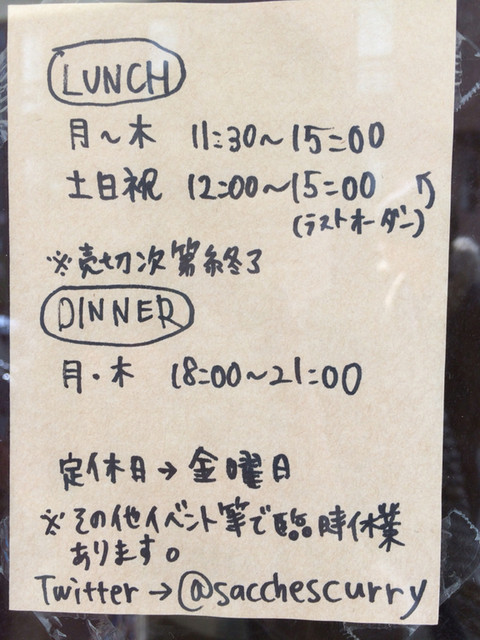 LUNCH
月～木 11:30～15:00
土日祝 12:00～15:00
(ラストオーダー)
※売切次第終了
DINNER
月・木 18:00～21:00
定休日→金曜日
※その他イベント等で臨時休業
あります。
Twitter→@sacchescurry